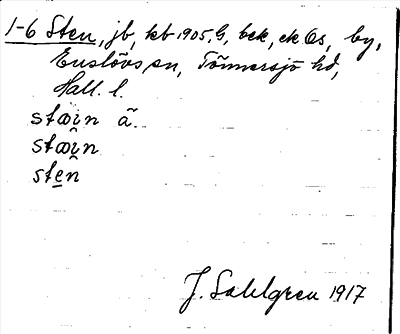 1-6 Sten, jb, kb 1905, G, bek, ek Ös, by,
Enslövs sn, Tönnersjö hd,
Hall. l.
stæin ä.
stæin
sten
J. Sahlgren 1917